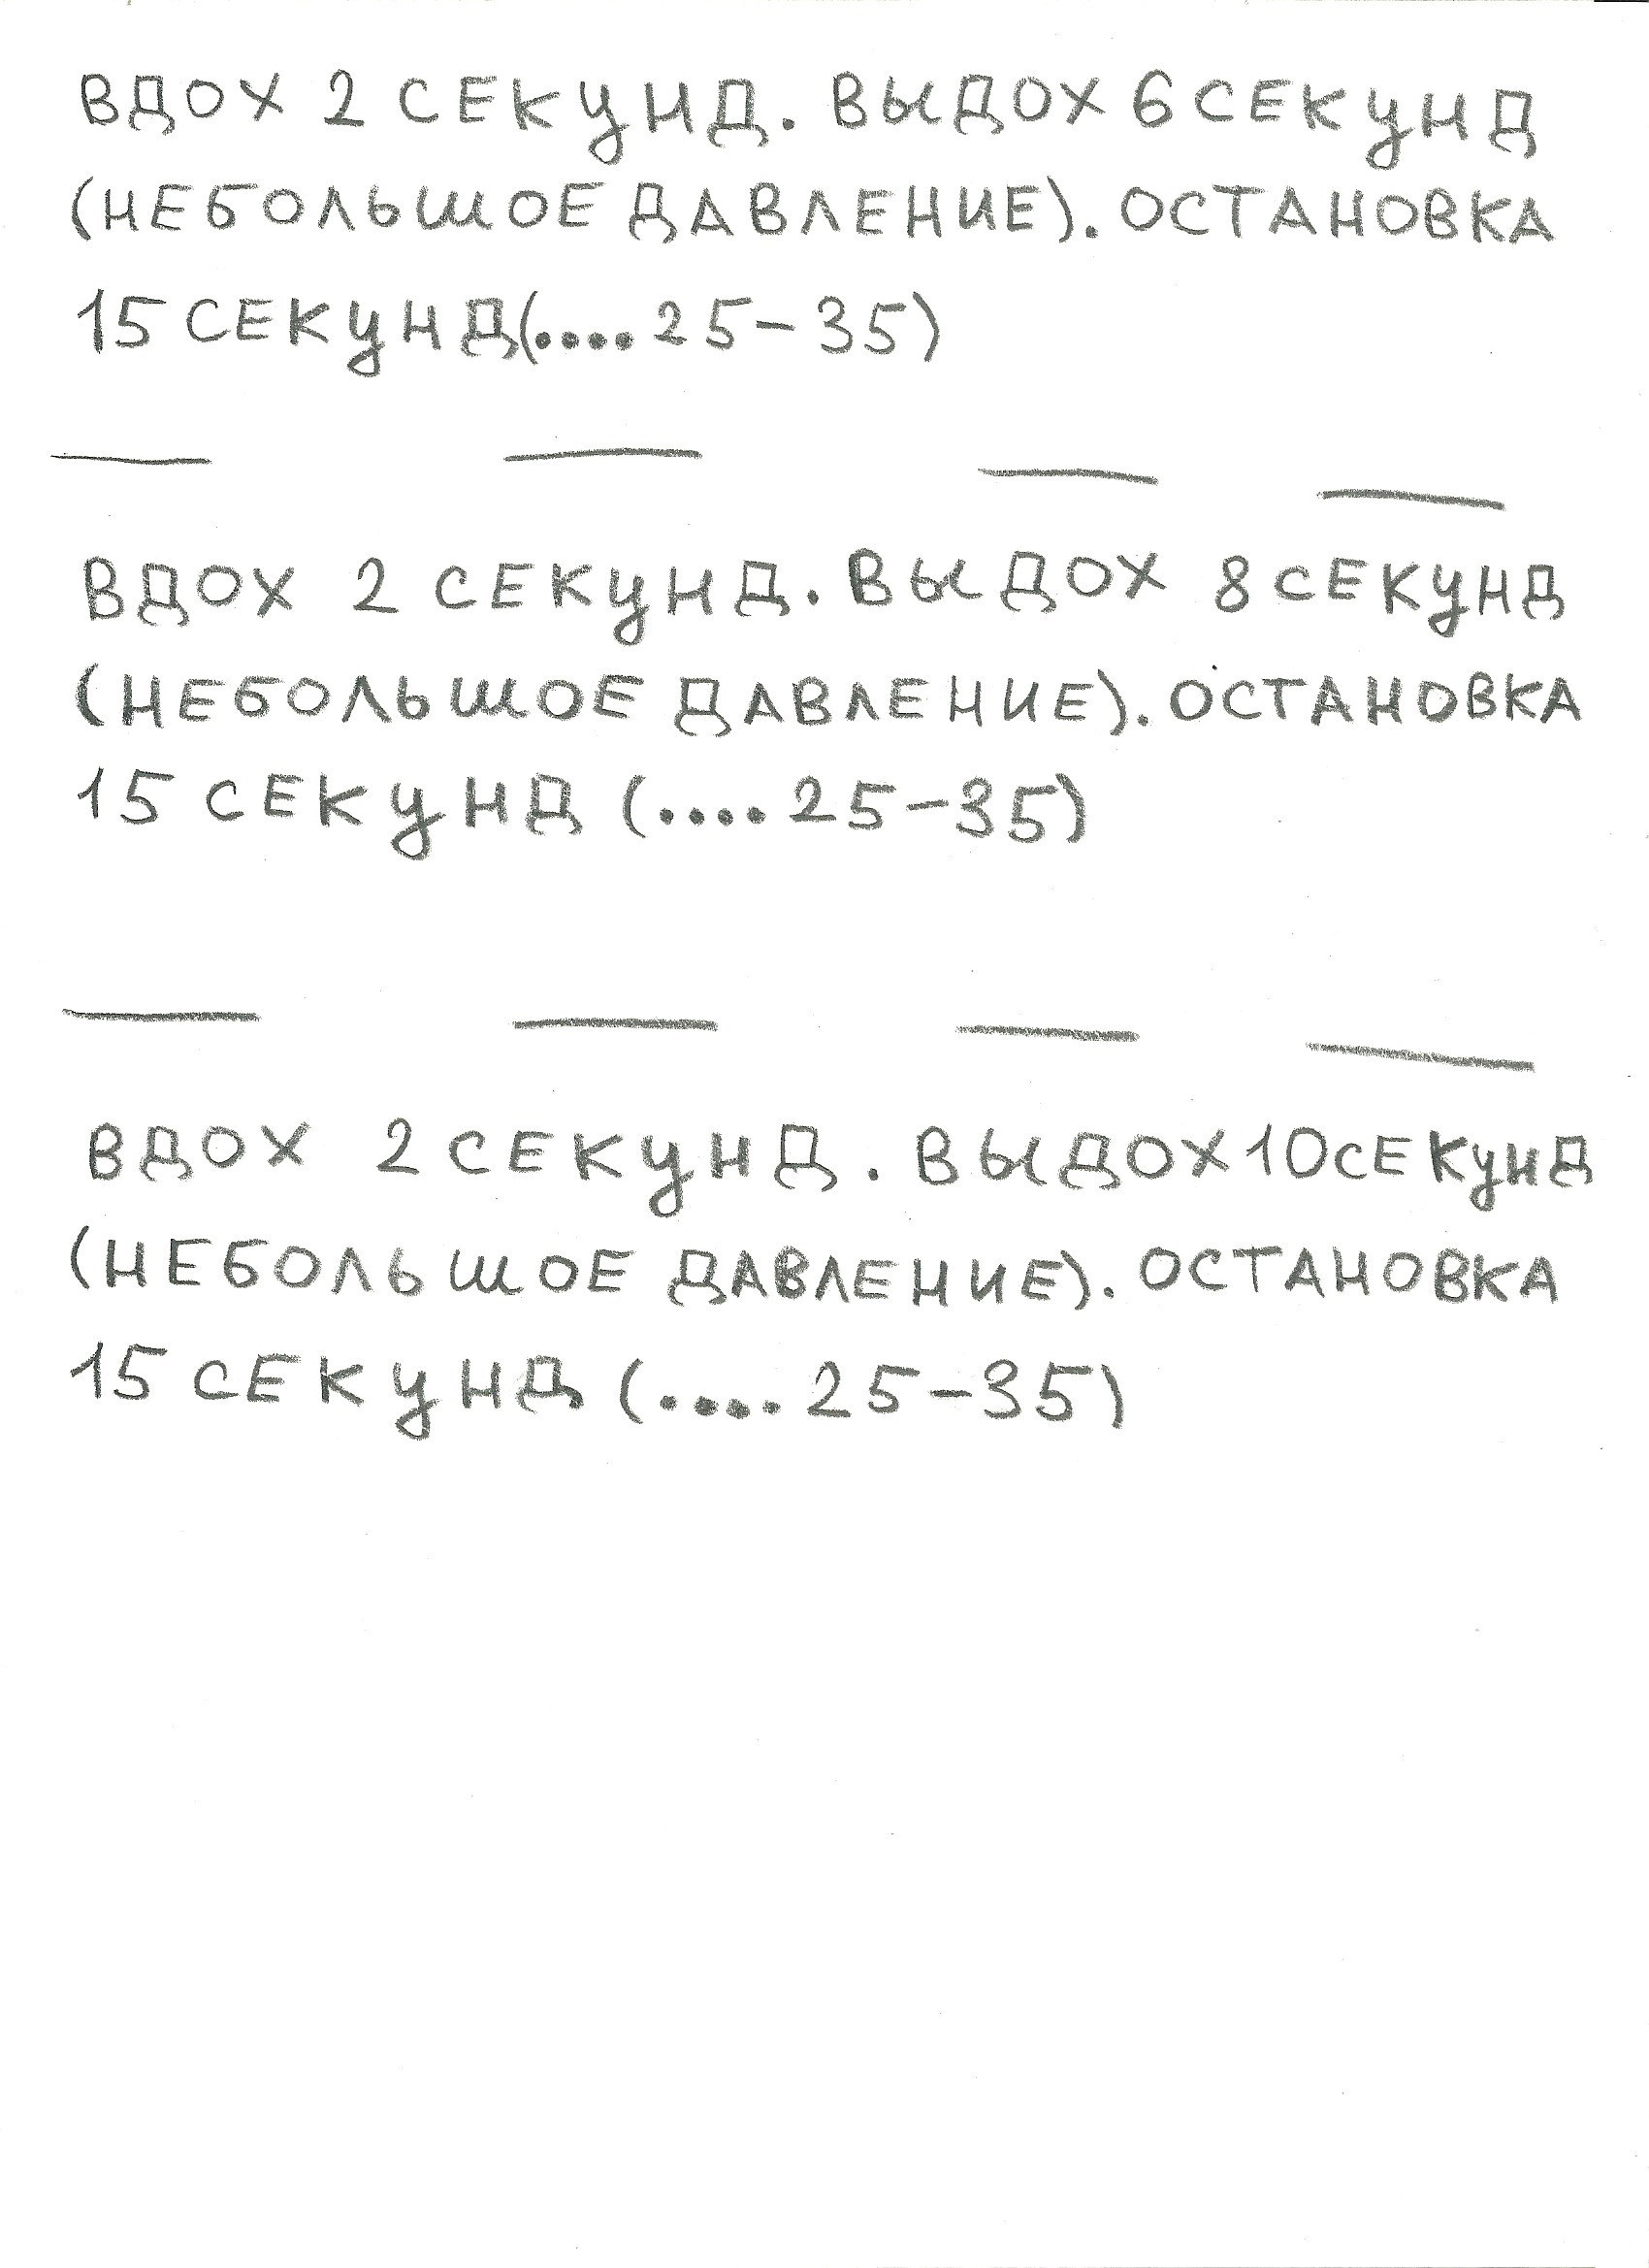 ВДОХ 2 СЕКУНД. ВЫДОХ 6 СЕКУНД
(НЕБОЛЬШОЕ ДАВЛЕНИЕ). ОСТАНОВКА
15 СЕКУНД(....25-35)
ВДОХ 2 СЕКУНД. ВЫДОХ 8 СЕКУНД
(НЕБОЛЬШОЕ ДАВЛЕНИЕ). ОСТАНОВКА
15 СЕКУНД (....25-35)
ВДОХ 2 СЕКУНД. ВЫДОХ 10 СЕКУНД
(НЕБОЛЬШОЕ ДАВЛЕНИЕ). ОСТАНОВКА
15 СЕКУНД (....25-35)